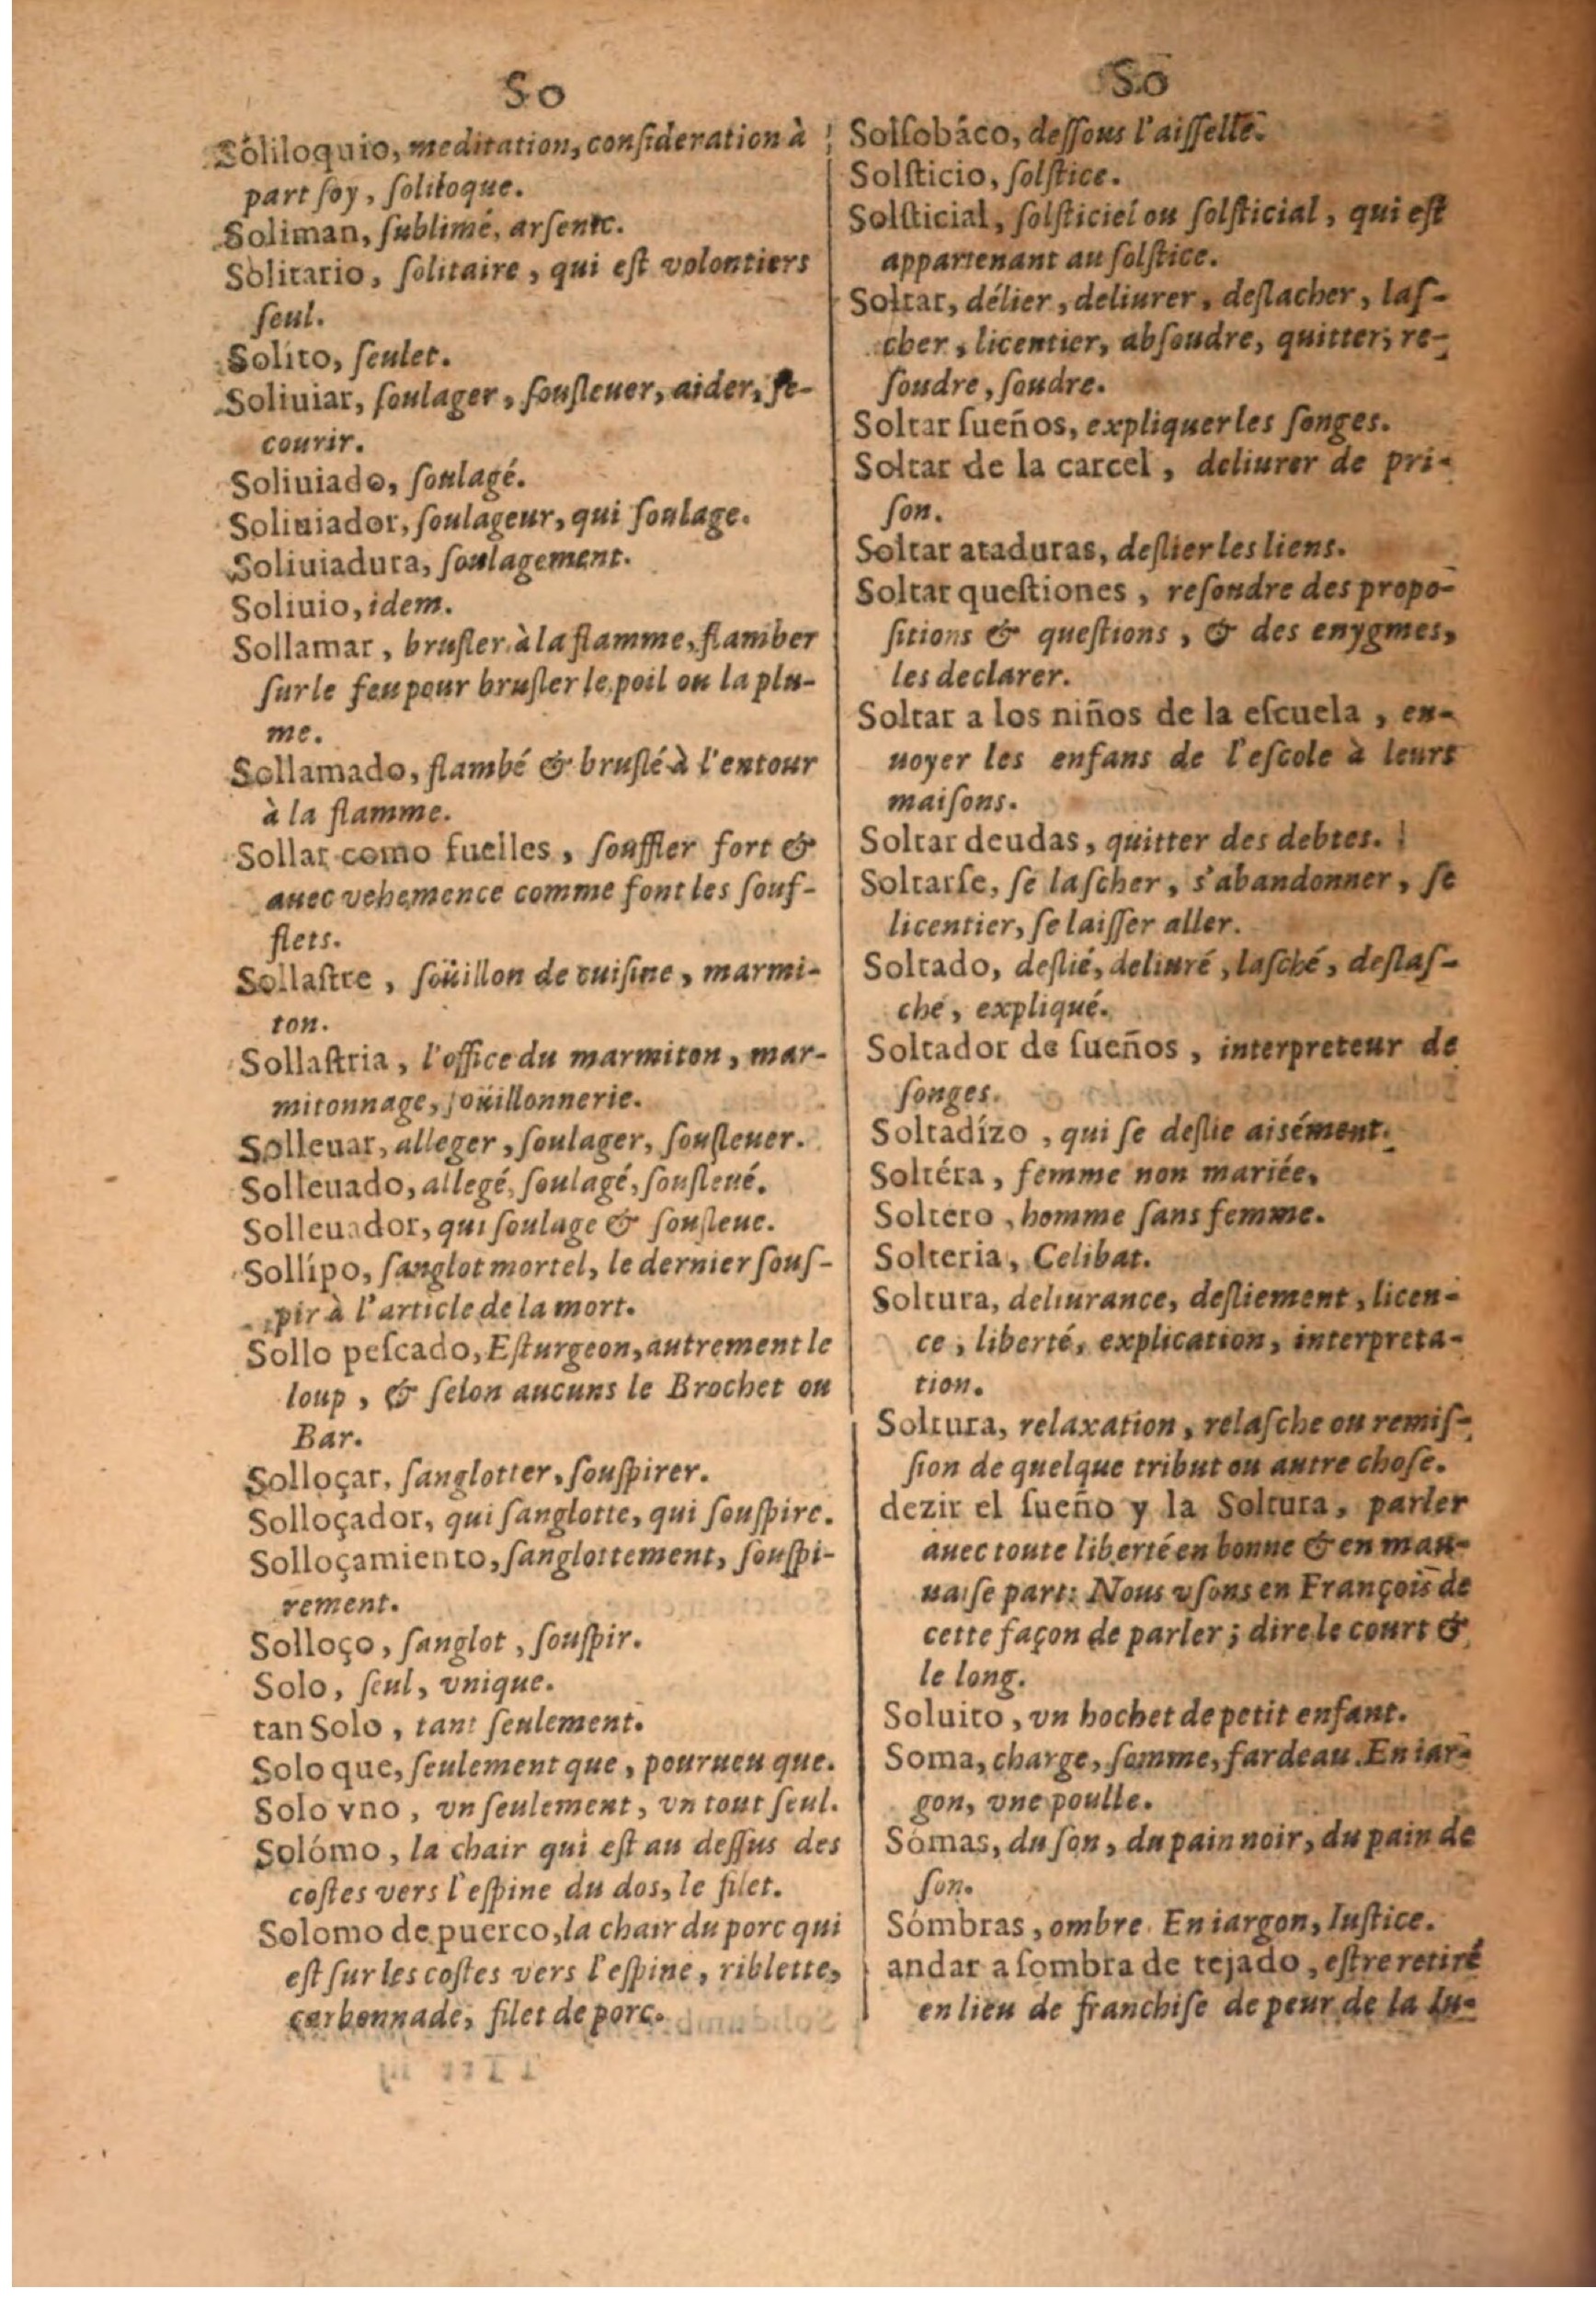 So
Soliloquio, meditation, conſideration à
part ſoy, ſoliloque.
Soliman, ſublimé, arſenic.
Solitario, ſolitaire, qui eſt volontiers
ſeul.
Solíto, ſeulet.
Soliuiar, ſoulager, ſouſleuer, aider, ſe-
courir.
Soliuiado, ſoulagé.
Soliuiador, ſoulageur, qui ſoulage.
Soliuiadura, ſoulagement.
Soliuio, idem.
Sollamar, bruſler à la flamme, flamber
ſur le feu pour bruſler le poil ou la plu-
me.
Sollamado, flambé & bruſlé à l'entour
à la flamme.
Sollar como fuelles, ſouffler fort &
auec vehemence comme font les ſouf-
flets.
Sollaſtre, ſoüillon de cuiſine, marmi-
ton.
Sollaſtria, l'office du marmiton, mar-
mitonnage, ſoüillonnerie.
Solleuar, alleger, ſoulager, ſouſleuer.
Solleuado, allegé, ſoulagé, ſouſleué.
Solleuador, qui ſoulage & ſouſleue.
Sollípo, ſanglot mortel, le dernier ſouſ-
pir à l'article de la mort.
Sollo peſcado, Eſturgeon, autrement le
loup, & ſelon aucuns le Brochet ou
Bar.
Solloçar, ſanglotter, ſouſpirer.
Solloçador, qui ſanglotte, qui ſouſpire.
Solloçamiento, ſanglottement, ſouſpi-
rement.
Solloço, ſanglot, ſouſpir.
Solo, ſeul, vnique.
tan Solo, tant ſeulement.
Solo que, ſeulement que, pourueu que.
Solo vno, vn ſeulement, vn tout ſeul.
Solómo, la chair qui eſt au deſſus des
coſtes vers l'eſpine du dos, le filet.
Solomo de puerco, la chair du porc qui
eſt ſur les coſtes vers l'eſpine, riblette,
carbonnade, filet de porc.
So
Solſobáco, deſſous l'aiſſelle.
Solſticio, ſolſtice.
Solſticial, ſolſticiel ou ſolſticial, qui eſt
appartenant au ſolſtice.
Soltar, délier, deliurer, deſtacher, laſ-
cher, licentier, abſoudre, quitter, re-
ſoudre, ſoudre.
Soltar ſueños, expliquer les ſonges.
Soltar de la carcel, deliurer de pri-
ſon.
Soltar ataduras, deſlier les liens.
Soltar queſtiones, reſondre des propo-
ſitions & queſtions, & des enygmes,
les declarer.
Soltar a los niños de la eſcuela, en-
uoyer les enfans de l'eſcole à leurs
maiſons.
Soltar deudas, quitter des debtes.
Soltarſe, ſe laſcher, s'abandonner, ſe
licentier, ſe laiſſer aller.
Soltado, deſlié, deliuré, laſché, deſlaſ-
ché, expliqué.
Soltador de ſueños, interpreteur de
ſonges.
Soltadízo, qui ſe deſlie aisément.
Soltéra, femme non mariée.
Soltero, homme ſans femme.
Solteria, Celibat.
Soltura, deliurance, deſliement, licen-
ce, liberté, explication, interpreta-
tion.
Soltura, relaxation, relaſche ou remiſ-
ſion de quelque tribut ou autre choſe.
dezir el ſueño y la Soltura, parler
auec toute liberté en bonne & en mau-
uaiſe part: Nous vſons en François de
cette façon de parler; dire le court &
le long.
Soluito, vn hochet de petit enfant.
Soma, charge, ſomme, fardeau. En iar-
gon, vne poulle.
Sómas, du ſon, du pain noir, du pain de
ſon.
Sómbras, ombre. En iargon, Iuſtice.
andar a ſombra de tejado, eſtre retiré
en lieu de franchiſe de peur de la Iu-